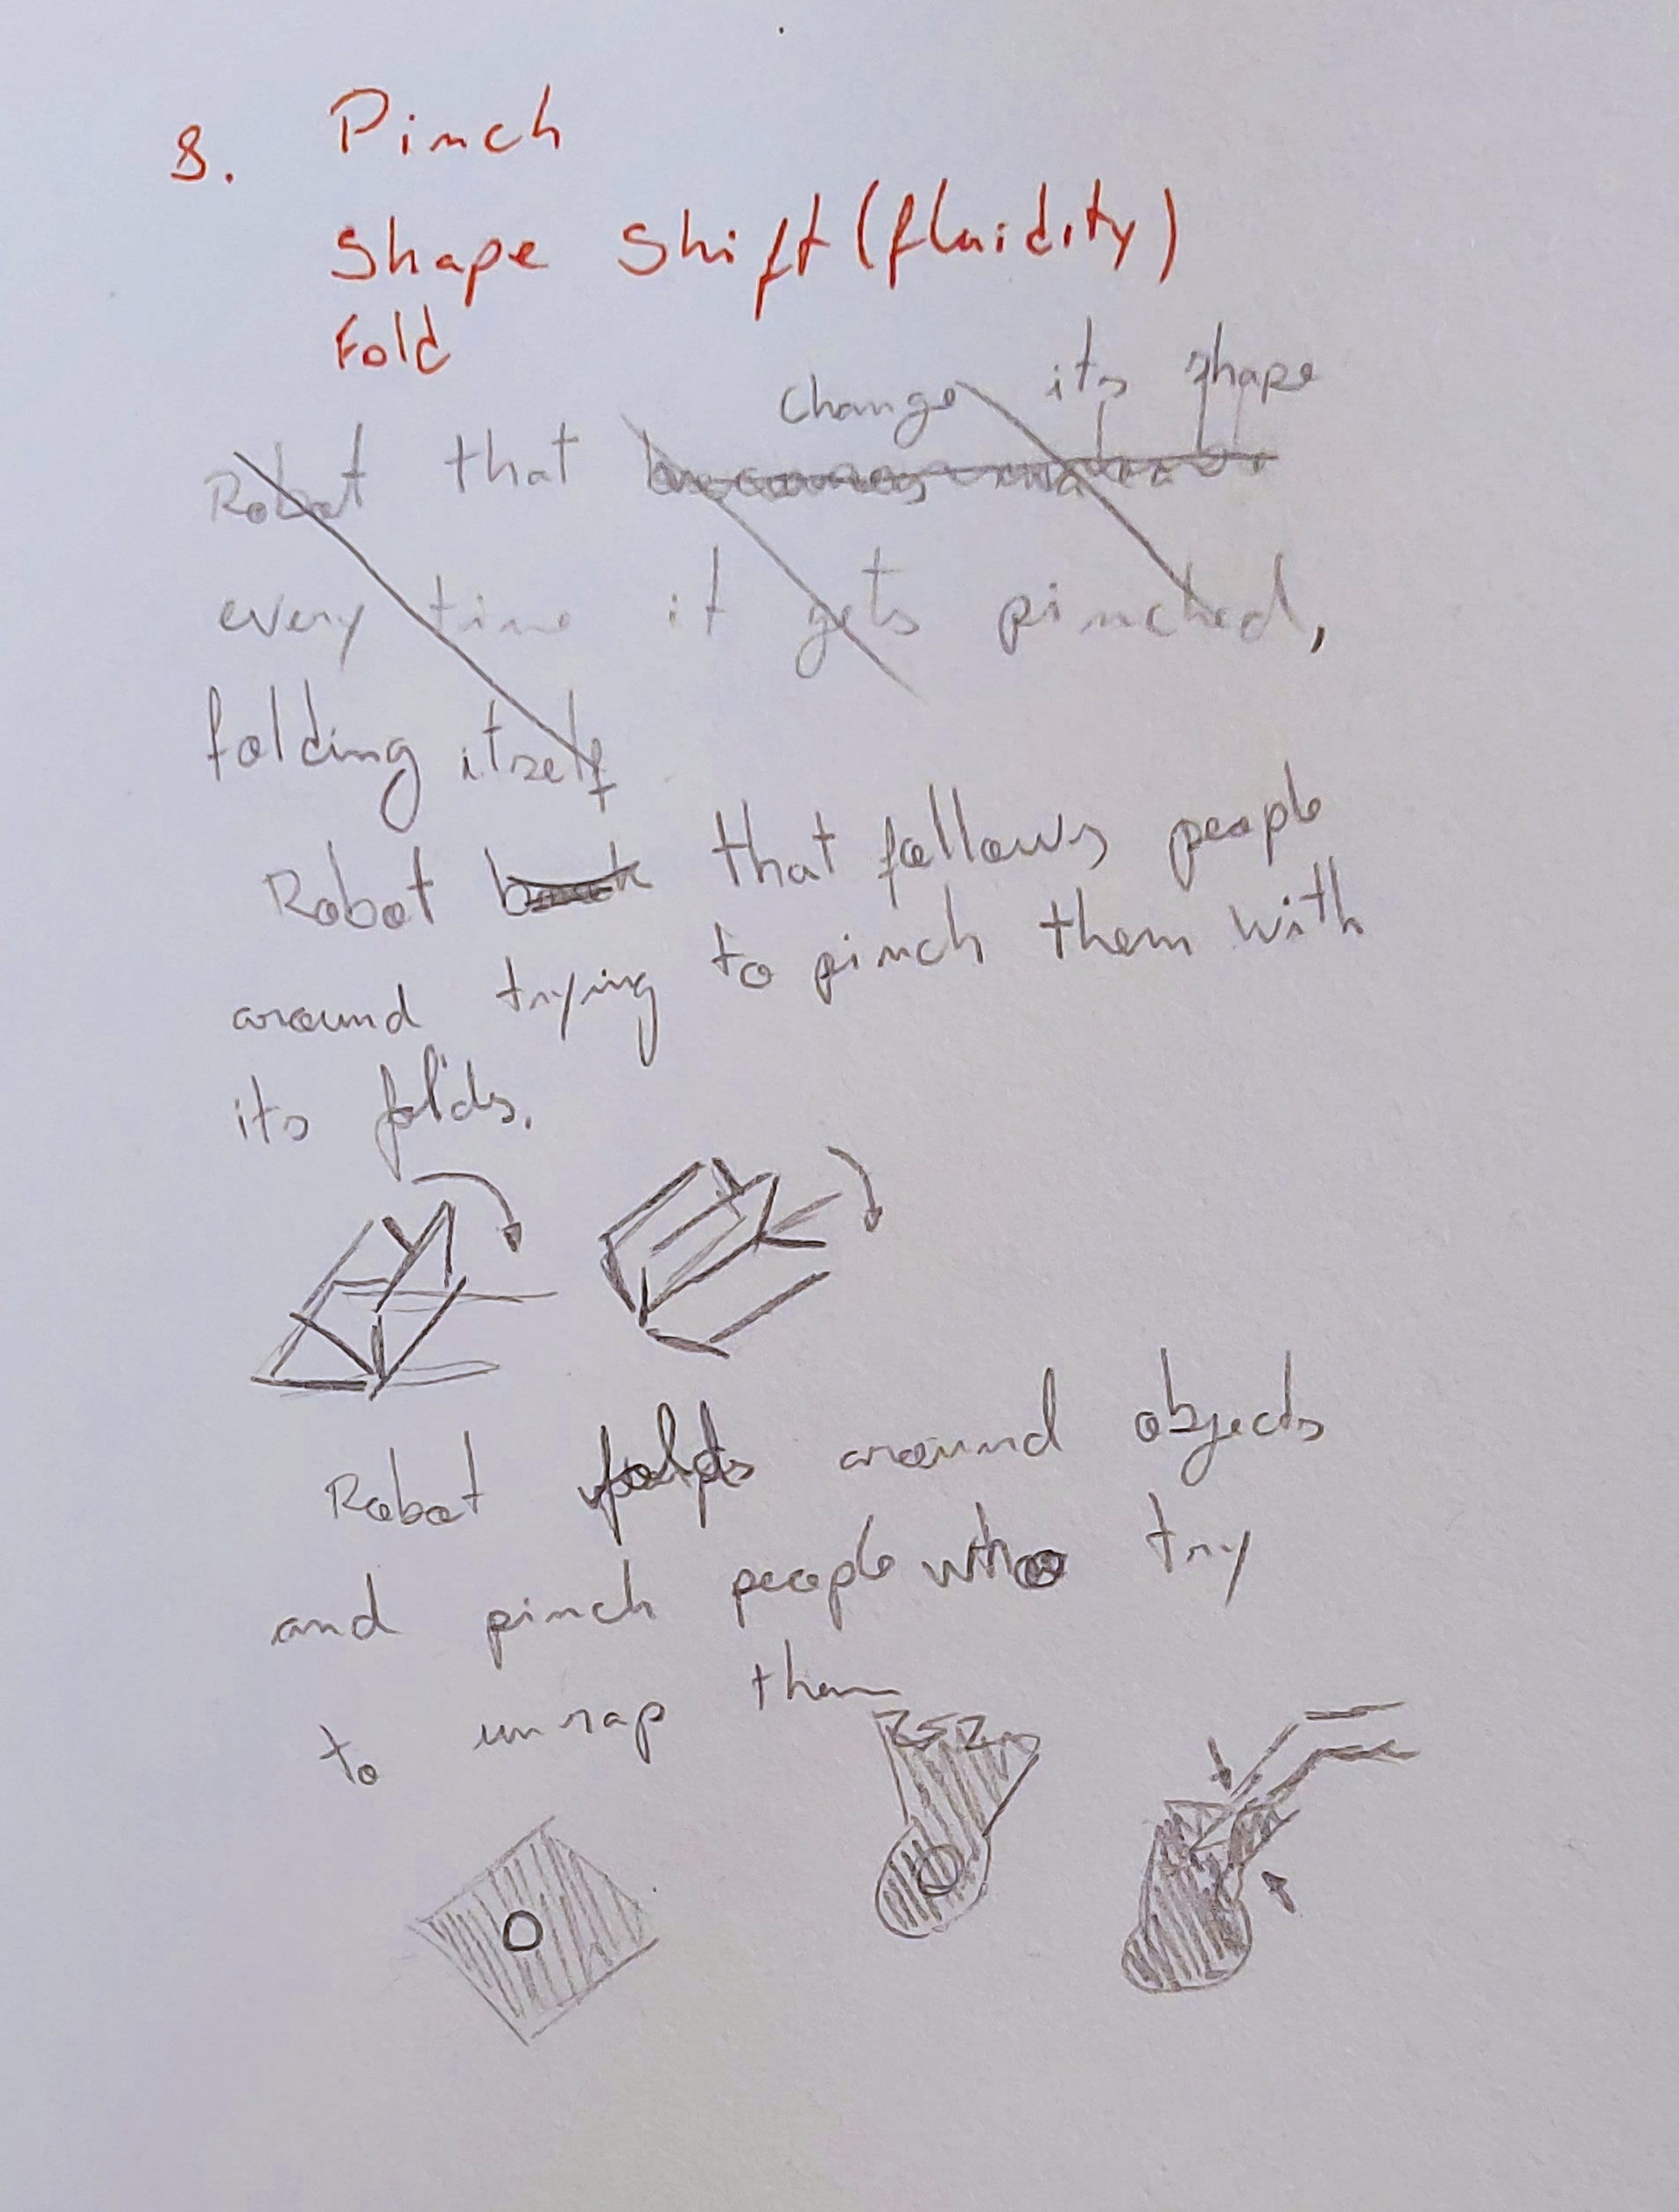 8. Pinch
Shape Shift (fluidity)
Fold
change its shape
Robot that
every time it gets pinched,
folding itself
Robot that follows people
around trying to pinch them with
its folds.
Robot folds around objects
and pinch people who try
to unrap them